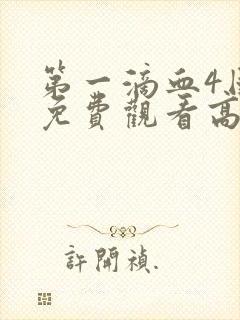 第一滴血4
免費觀看高
許開禎.